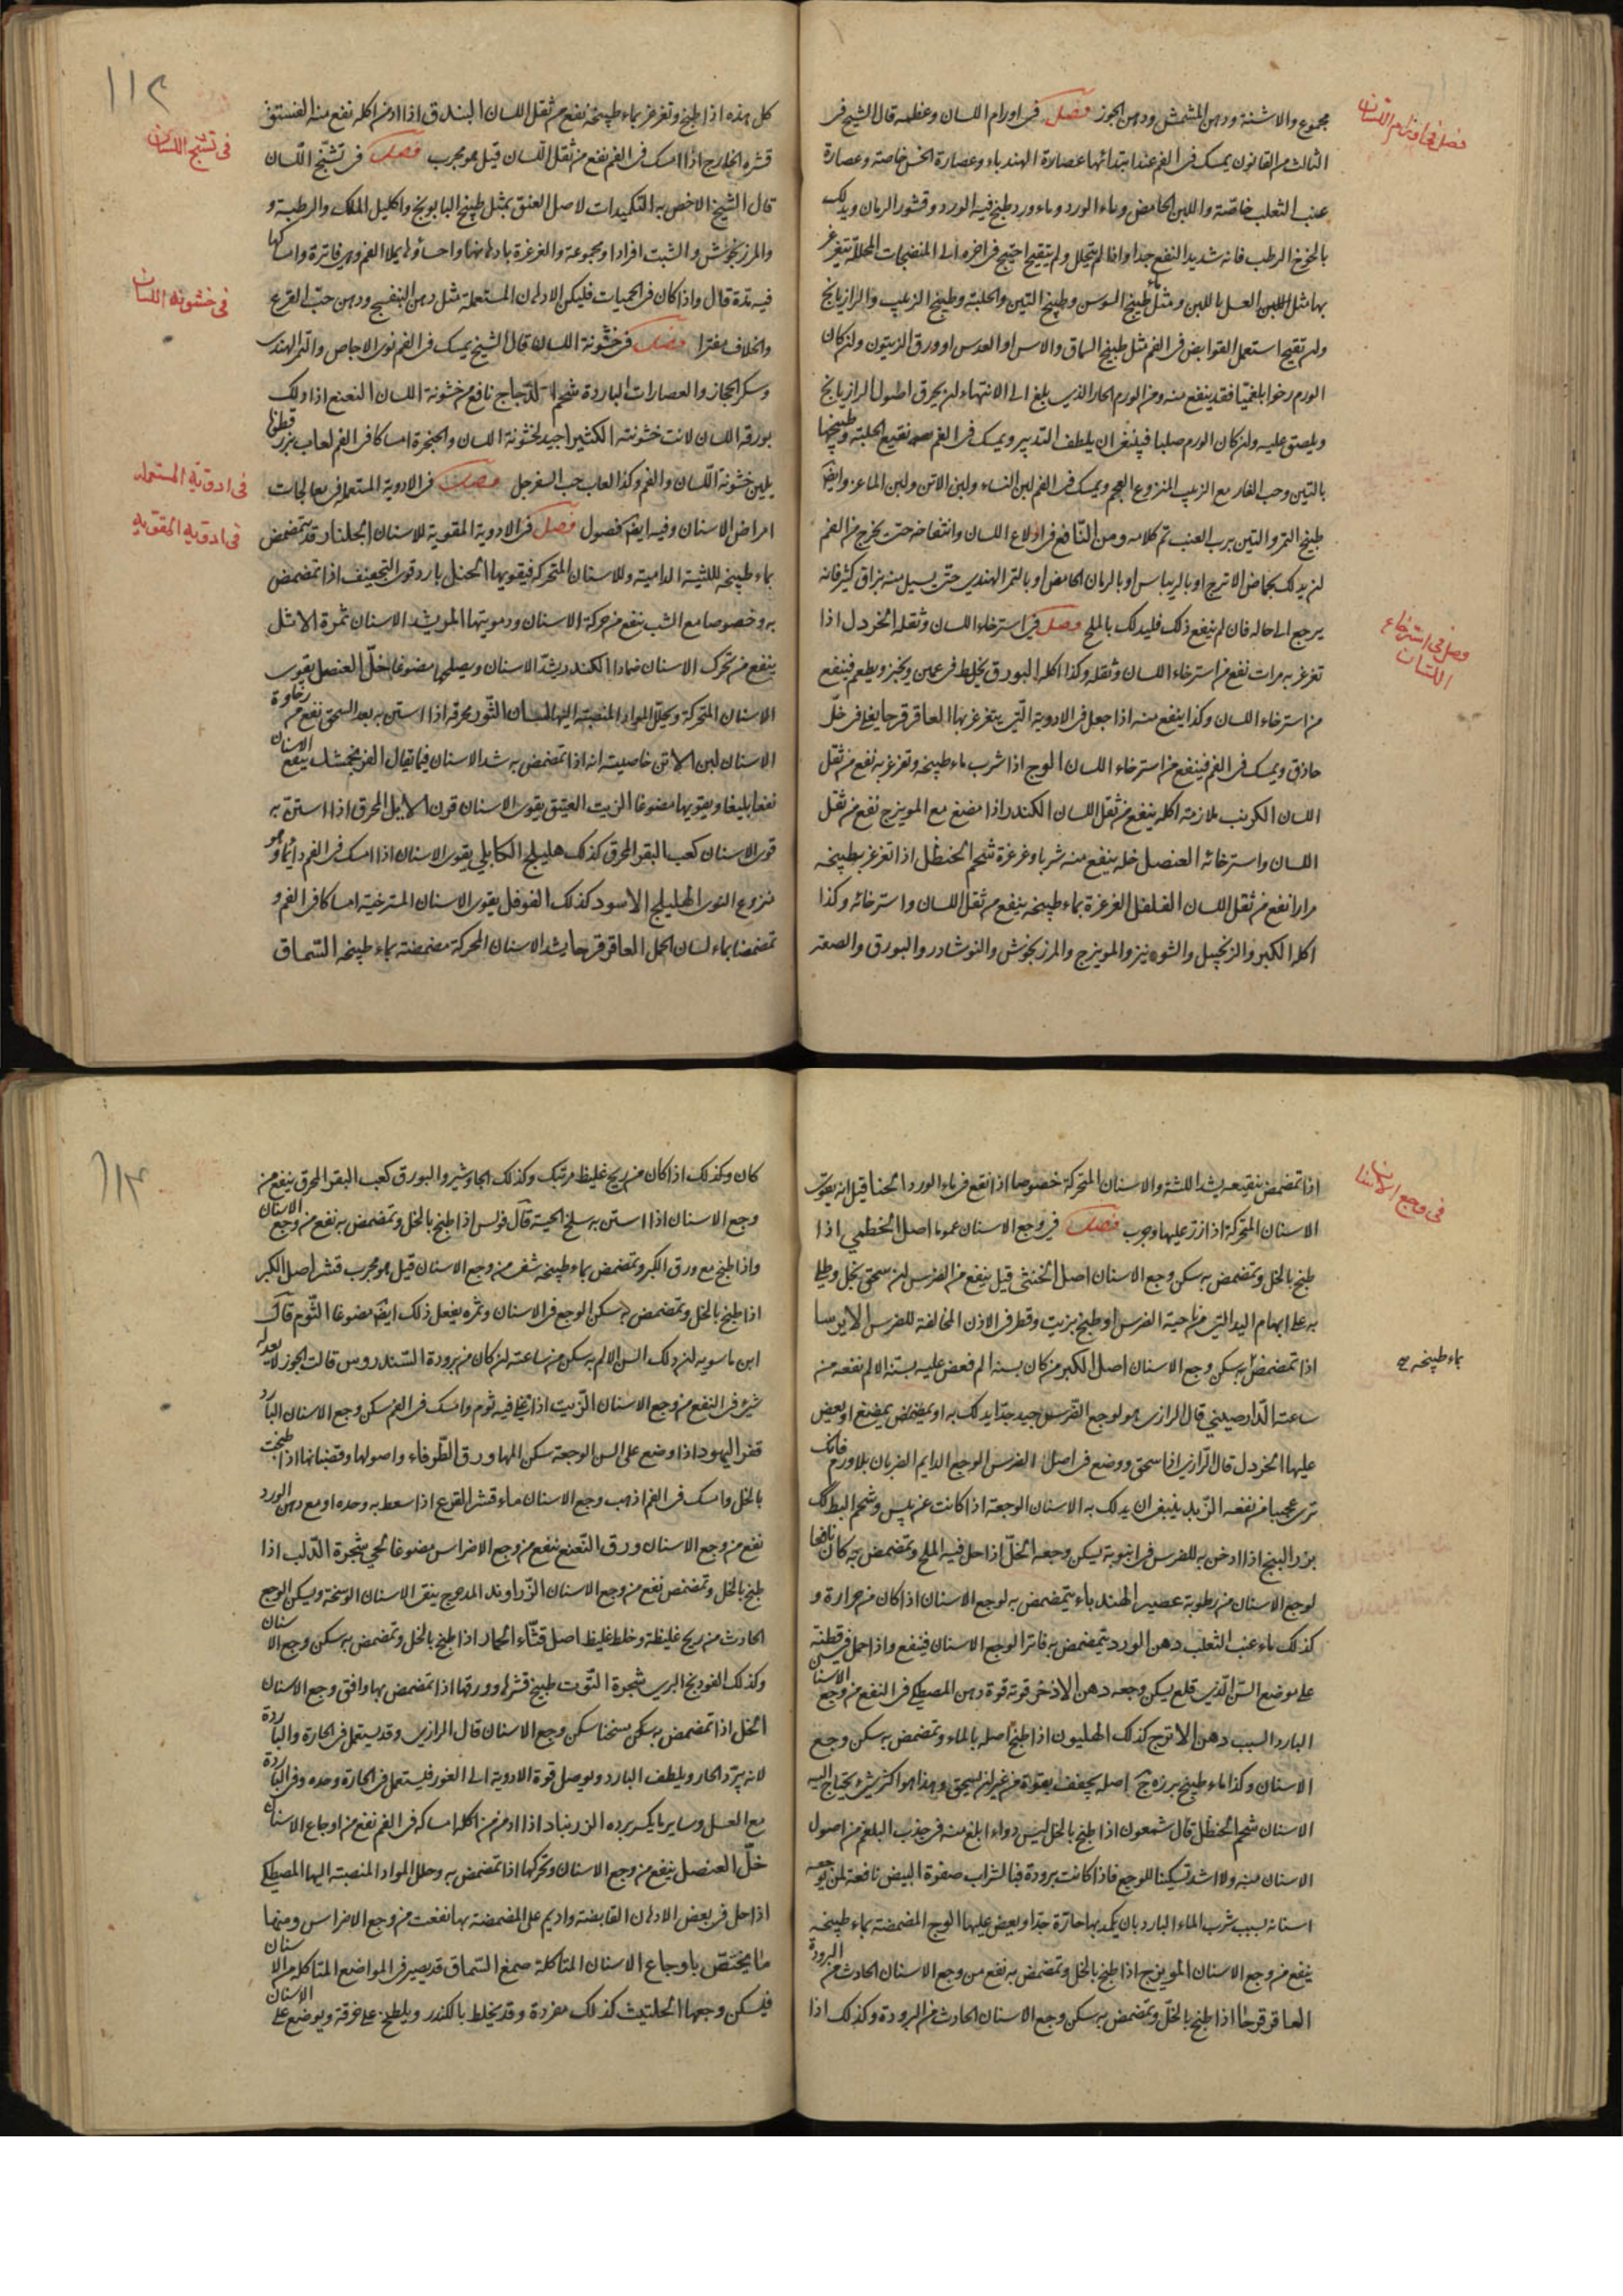 فصل في اورام اللسان
مجموع والاشنة ودهن المشمش ودهن الجوز فصل في اورام اللسان وعظمه قال الشيخ في
الثالث من القانون يمسك في الفم عند ابتدائها عصارة الهندباء وعصارة الخس خاصة وعصارة
عنب الثعلب خاصة واللبن الحامض وماء الورد وماء ورد طبخ فيه الورد وقشور الرمان ويدلك
بالخوخ الرطب فانه شديد النفع جدا واذا لم يتحلل ولم يتقيح احتيج في اخره الى المنضجات المحللة يتغرغر
بها مثل اللبن العسل باللبن ومثل طبيخ السوسن وطبيخ التين والحلبة وطبيخ الزبيب والرازيانج
ولم تقيح استعمل القوابض في الفم مثل طبيخ السماق والاس او العدس او ورق الزيتون وان كان
الورم رخوا بلغميا فقد ينفع منه ومن الورم الحار الذي بلغ الى الانتهاء ان يحرق اصول الرازيانج
ويلصق عليه وان كان الورم صلبا فينبغي ان يلطف التدبير ويمسك في الفم نقيع الحلبة وطبيخها
بالتين وحب الغار مع الزبيب المنزوع العجم ويمسك في الفم لبن النساء ولبن الاتن ولبن الماعز وايضا
طبيخ التمر والتين برب العنب تم كلامه ومن النافع في ادلاع اللسان وانتفاخه حتى يخرج من الفم
ان يدلك بحماض الاترج او بالريباس او بالرمان الحامض او بالتمر الهندي حتى يسيل منه بزاق كثير فانه
يرجع الى حاله فان لم ينفع ذلك فليدلك بالملح فصل في استرخاء اللسان وثقله الخردل اذا
فصل في استرخاء
اللسان
تغرغر به مرات نفع من استرخاء اللسان وثقله وكذا اكله البورق يخلط في عجين ويخبز ويطعم فينفع
من استرخاء اللسان وكذا ينفع منه اذا جعل في الادوية التي يتغرغر بها العاقرقرحا يغلى في خل
حاذق ويمسك في الفم فينفع من استرخاء اللسان الوج اذا شرب ماء طبيخه وتغرغر به نفع من ثقل
اللسان الكرنب ملازمة اكله ينفع من ثقل اللسان الكندر اذا مضغ مع المويزج نفع من ثقل
اللسان واسترخائه العنصل خله ينفع منه شربا وغرغرة شحم الحنظل اذا تغرغر بطبيخه
مرارا نفع من ثقل اللسان الفلفل الغرغرة بماء طبيخه ينفع من ثقل اللسان واسترخائه وكذا
اكله الكبر والزنجبيل والشونيز والمويزج والمرزنجوش والنوشادر والبورق والصعتر
١١٢
كل هذه اذا طبخ وتغرغر بماء طبيخه نفع من ثقل اللسان البندق اذا ادمن اكله نفع منه الفستق
قشره الخارج اذا امسك في الفم نفع من ثقل اللسان قيل هو مجرب فصل في تشنج اللسان
في تشنج اللسان
قال الشيخ الاخص به التكميدات لاصل العنق بمثل طبيخ البابونج واكليل الملك والرطبة و
والمرزنجوش والشبت افرادا ومجموعة والغرغرة بادهانها واحساؤها يملا الفم وهي فاترة وامساكها
فيه مدة قال واذا كان في الحميات فليكن الادهان المستعملة مثل دهن البنفسج ودهن حب القرع
في خشونة اللسان
والخلاف مفترا فصل في خشونة اللسان قال الشيخ يمسك في الفم نوى الاجاص والتمر الهندي
وسكر الحجاز والعصارات الباردة شحم الدجاج نافع من خشونة اللسان النعنع اذا دلك
بورقه اللسان لانت خشونته الكثيرا جيد لخشونة اللسان والحنجرة امساكا في الفم لعاب بزر قطونا
يلين خشونة اللسان والفم وكذا لعاب حب السفرجل فصل في الادوية المستعمله في معالجات
في ادوية المستعمله
امراض الاسنان وفيه ايضا فصول فصل في الادوية المقوية للاسنان الجلنار قد يتمضمض
في ادوية المقوية
بماء طبيخه لللثة الدامية وللاسنان المتحركة فيقويها الحنبل بارد قوي التجفيف اذا تمضمض
به وخصوصا مع الشب ينفع من حركة الاسنان ودمويتها المر يشد الاسنان ثمرة الاثل
ينفع من تحرك الاسنان ضمادا الكندر يشد الاسنان ويصلحها مضوغا خل العنصل يقوي
الاسنان المتحركة ويحلل المواد المنصبة اليها الثور محرقه اذا استن به بعد السحق نفع من رخاوة
الاسنان لبن الاتن خاصيته انه اذا تمضمض به شد الاسنان فيما يقال الفرنجمشك ينفع الاسنان
نفعا بليغا ويقويها مضوغا الزيت العتيق يقوي الاسنان قرن الايل المحرق اذا استن به
قوى الاسنان كعب البقر المحرق كذلك هليلج الكابلي يقوي الاسنان اذا امسك في الفم دائما وهو
منزوع النوى الهليلج الاسود كذلك الفوفل يقوي الاسنان المسترخية امساكا في الفم و
تمضمضا بماء لسان الحمل العاقرقرحا يشد الاسنان المحركة مضمضة بماء طبيخه السماق
اذا تمضمض بنقيعه يشد اللثه والاسنان المتحركة خصوصا اذا نقع في ماء الورد الحنا قيل انه يقوي
في وجع الاسنان
الاسنان المتحركة اذا ذر عليها وجرب فصل في وجع الاسنان عموما اصل الخطمي اذا
طبخ بالخل وتمضمض به سكن وجع الاسنان اصل الخنثى قيل ينفع من الضرس ان سحق بخل وطلي
به على ابهام اليد التي من ناحية الضرس او طبخ بزيت وقطر في الاذن المخالفة للضرس الايرسا
اذا تمضمض به سكن وجع الاسنان اصل الكبر من كان بسنه الم فعض عليه بسنه الالم نفعه من
بماء طبيخه
ساعته الدارصيني قال الرازي هو لوجع الضرس جيد جدا يدلك به او يمضمض يمضغ او يعض
عليها الخردل قال الرازي اذا سحق ووضع في اصل الضرس الوجع الدايم الضربان بلا ورم فانك
ترى عجيبا من نفعه الزبد ينبغي ان يدلك به الاسنان الوجعة اذا كانت عن يبس وشحم البط كك
بزر البنج اذا ادخن به للضرس في انبوبة يسكن وجعه الخل اذا حل فيه الملح وتمضمض به كان نافعا
لوجع الاسنان من رطوبة عصير الهندباء يتمضمض به لوجع الاسنان اذا كان من حرارة و
كذلك ماء عنب الثعلب دهن الورد يتمضمض به فاترا لوجع الاسنان فينفع واذا حمل في قطنة
على موضع السن الذي قلع يسكن وجعه دهن الاذخر قوته قوة دهن المصطكي في النفع من وجع الاسنان
البارد السبب دهن الاترج كذلك الهليون اذا طبخ اصله بالماء وتمضمض به سكن وجع
الاسنان وكذا ماء طبيخ بزره اصله يجفف بقوة من غير ان يسحق وهذا هو اكثر شيء يحتاج اليه
الاسنان شحم الحنظل قال شمعون اذا طبخ بالخل ليس دواء ابلغ منه في جذب البلغم من اصول
الاسنان منه ولا اشد تسكينا للوجع فاذا كانت برودة فبالشراب صفرة البيض نافعة لمن يوجعه
اسنانه بسبب شرب الماء البارد بان يكمد بها حارة جدا ويعض عليها الوج المضمضة بماء طبيخه
ينفع من وجع الاسنان المويزج اذا طبخ بالخل وتمضمض به نفع من وجع الاسنان الحادث من البرودة
العاقرقرحا اذا طبخ بالخل وتمضمض به سكن وجع الاسنان الحادث من البرودة وكذلك اذا
١١٣
كان وكذلك اذا كان من ريح غليظ مرتبك وكذلك الجاوشير والبورق كعب البقر المحرق ينفع من
وجع الاسنان اذا استن به سلخ الحية قال فولس اذا طبخ بالخل وتمضمض به نفع من وجع الاسنان
واذا طبخ مع ورق الكبر وتمضمض بماء طبيخه شفى من وجع الاسنان قيل هو مجرب قشر اصل الكبر
اذا طبخ بالخل وتمضمض به سكن الوجع في الاسنان وثمره يفعل ذلك ايضا مضوغا الثوم قال
ابن ماسويه ان دلك السن الالم به سكن من ساعته ان كان من برودة السندروس قالت الجوز لا يعدله
شيء في النفع من وجع الاسنان الزيت اذا غلي فيه ثوم وامسك في الفم سكن وجع الاسنان البارد
قفر اليهود اذا وضع على السن الوجعة سكن المها ورق الطرفاء واصولها وقضبانها اذا طبخت
بالخل وامسك في الفم اذهب وجع الاسنان ماء قشر القرع اذا سعط به وحده او مع دهن الورد
نفع من وجع الاسنان ورق النعنع ينفع من وجع الاضراس مضوغا لحي شجرة الدلب اذا
طبخ بالخل وتمضمض نفع من وجع الاسنان الزراوند المدحرج ينقي الاسنان الوسخة ويسكن الوجع
الحادث من ريح غليظة وخلط غليظ اصل قثاء الحمار اذا طبخ بالخل وتمضمض به سكن وجع الاسنان
وكذلك الفودنج البري شجرة التوت طبيخ قشرها وورقها اذا تمضمض بها وافق وجع الاسنان
الخل اذا تمضمض به سكن مسخنا سكن وجع الاسنان قال الرازي وقد يستعمل في الحارة والباردة
لانه يبرد الحار ويلطف البارد ويوصل قوة الادوية الى الغور فليستعمل في الحارة وحده وفي الباردة
مع العسل وساير ما يكسر برده الزرنباد اذا ادمن من اكله امساكه في الفم نفع من اوجاع الاسنان
خل العنصل ينفع من وجع الاسنان وتحركها اذا تمضمض به وحلل المواد المنصبة اليها المصطكي
اذا حل في بعض الادهان القابضة واديم على المضمضة بها نفعت من وجع الاضراس ومنها
ما يختص باوجاع الاسنان المتاكلة صمغ السماق قد يصير في المواضع المتاكله من الاسنان
فيسكن وجعها الحلتيت كذلك مفردة وقد يخلط بالكندر ويلطخ على خرقة ويوضع على الاسنان